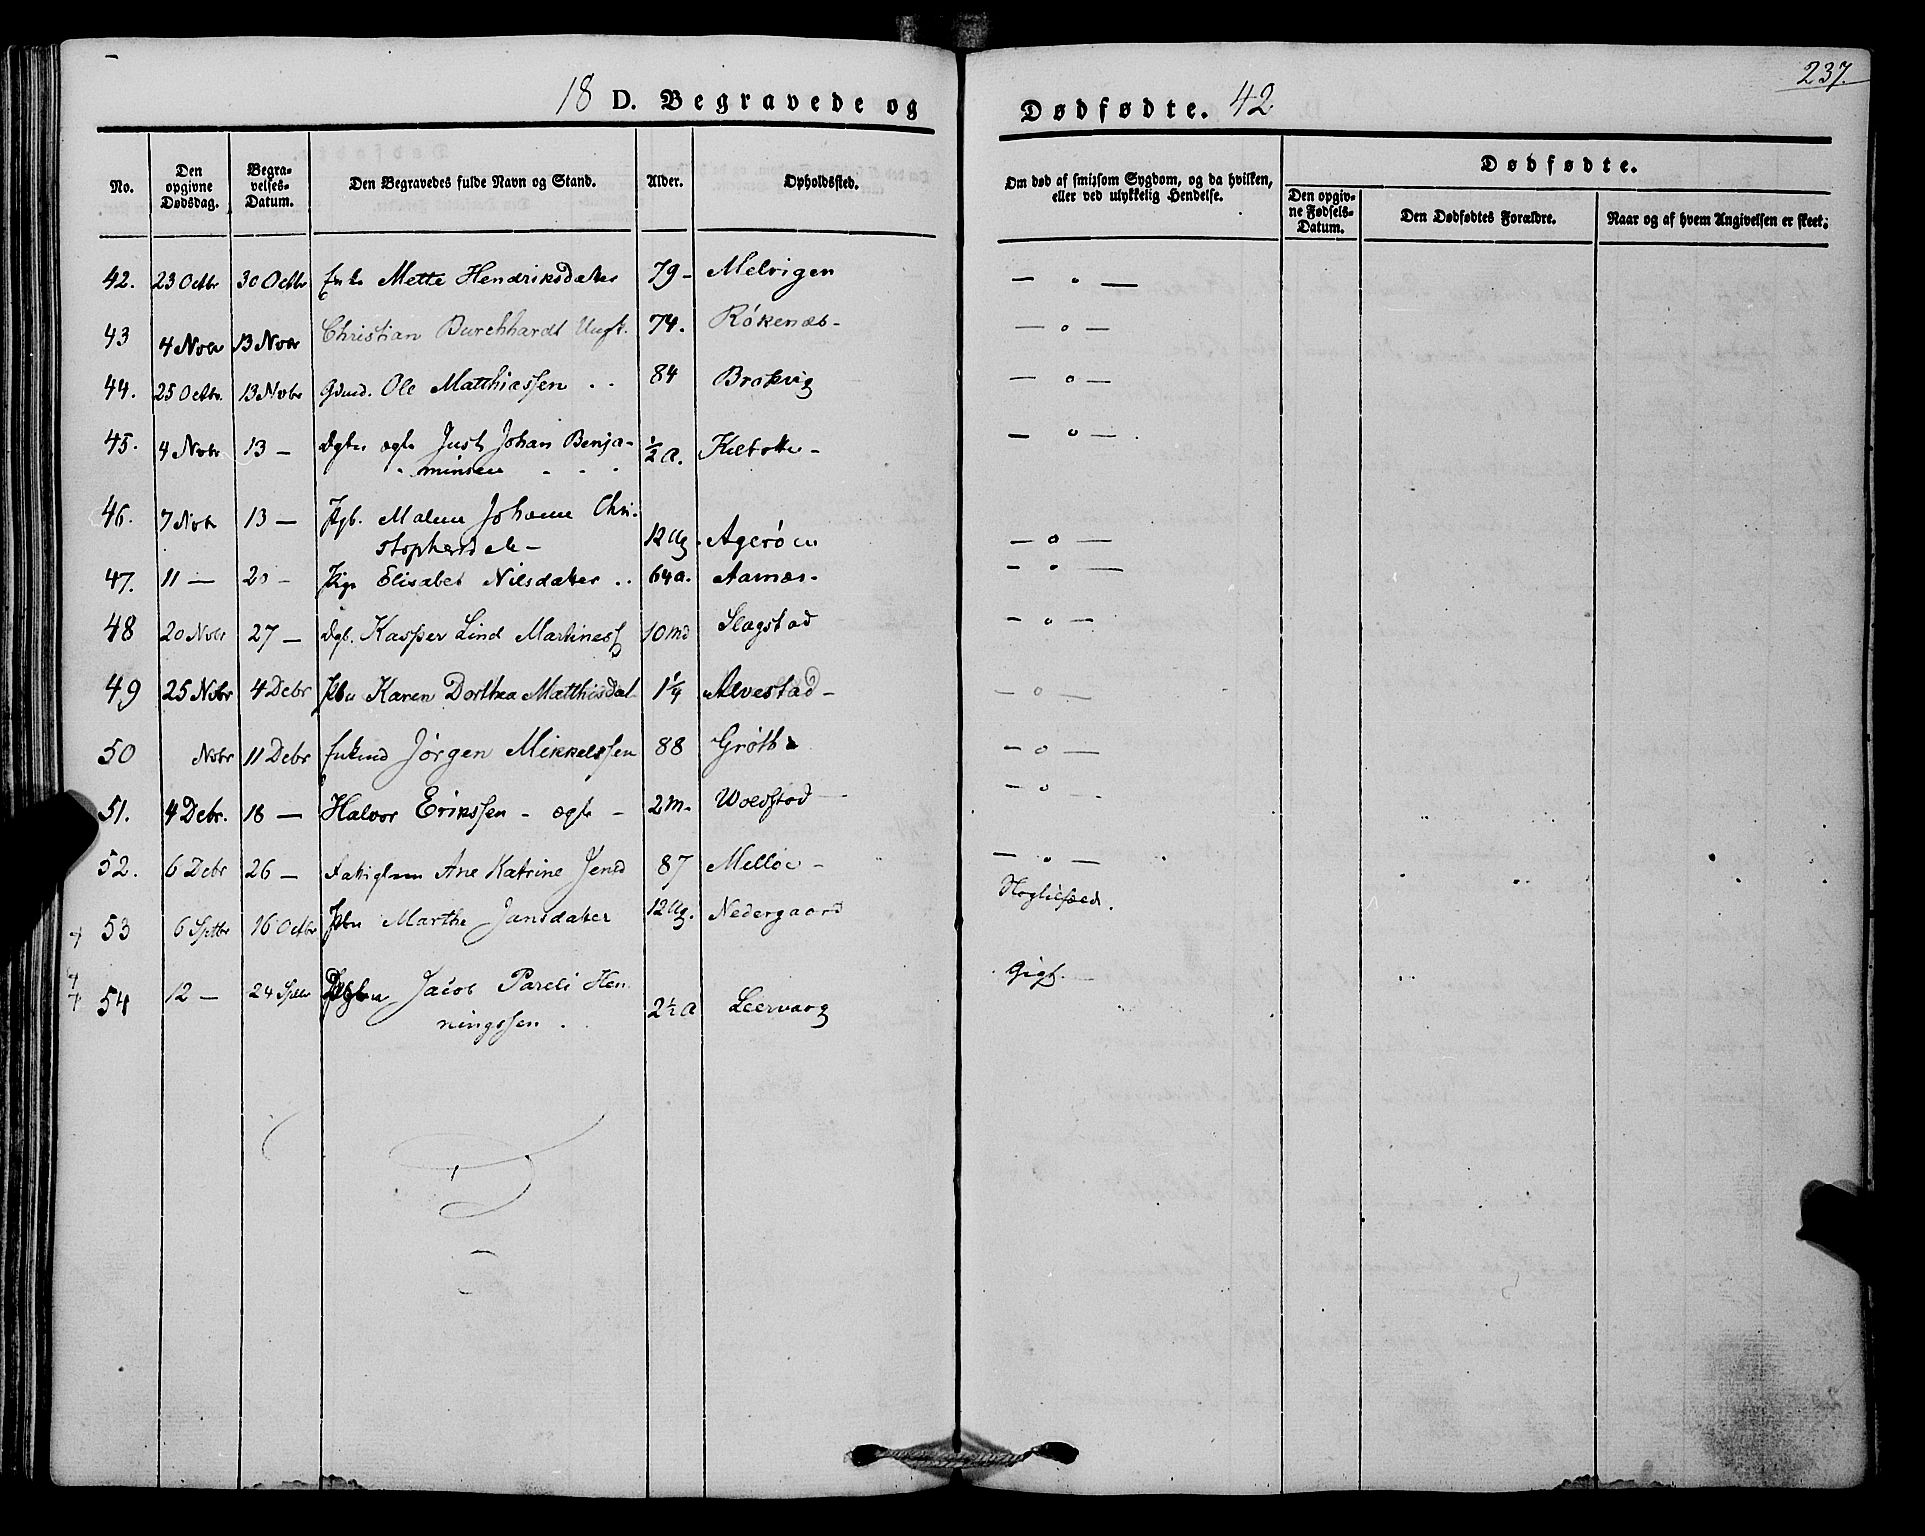 237.
18 D. Begravede og Dødfødte. 42
No.
Den opgivne Dødsdag.
Begravelses-Datum.
Den Begravedes fulde Navn og Stand.
Alder.
Opholdssted.
Om død af smitsom Sygdom, og da hvilken, eller ved ulykkelig Hendelse.
Dødfødte.
Den opgivne Fødsels-Datum.
Den Dødfødtes Forældre.
Naar og af hvem Angivelsen er skeet.
42. 23 Octbr 30 Octbr Enke Mette Hendriksdatter 79 - Melvigen — " —
43 4 Nobr 13 Nobr Christian Burchhardt 74. Rökenæs - — " —
44. 25 Octbr. 13 Nobr Gdmd. Ole Matthiassen .. 84 Brokvig — " —
45. 4 Nobr 13 — ægte Just Johan Benja-
minsen ½ a. Kilbotn - — " —
46. 7 Nobr 13 — Malene Johanne Chri-
stophersd 12 Ug. Agerøen — " —
47. 11 — 20 - Pige Elisabet Nilsdatter .. 64 a. Aanæs - — " —
48 20 Nobr 27 — Kasper Lind Martiness 10 md Slagstad — " —
49 25 Nobr 4 Debr Karen Dorthea Matthisdat 1¼ Alvestad - — " —
50 Nobr 11 Debr Enkmd Jørgen Mikkelssen 88 — " —
51. 4 Debr. 18 — Halvor Erikssen - ægte - 2 m. Woldstad — — " —
52. 6 Debr 26 — Fattiglem Ane Katrine Jensd 87 Melløe - — " —
53 6 Septbr 16 Octbr Marthe Jansdatter 12 Ug. Nedergaard
54 12 — 24 Septbr Jacob Pareli Hen
ningssen . 2½ a Leervaag Gigt. —